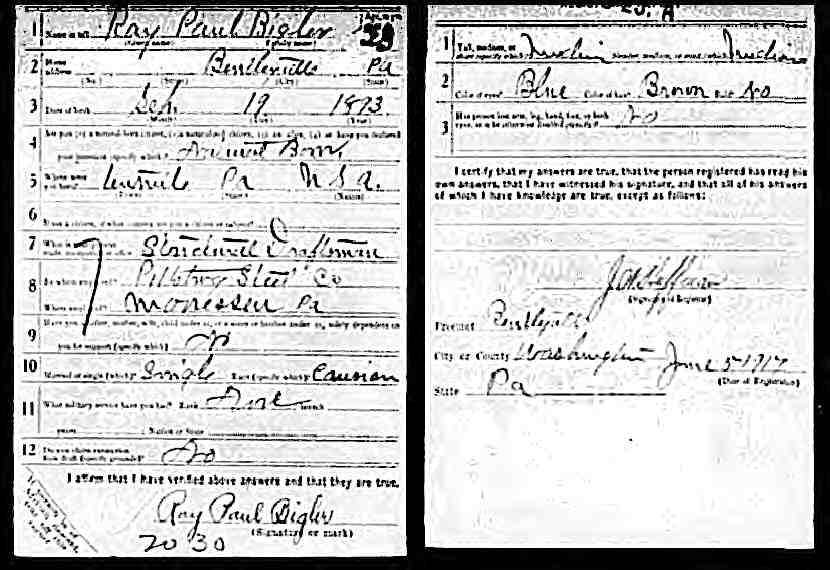 1 Name in full Ray Paul Bigler
(Given name) (Family name)
Age, in yrs
23
2 Home address Bentleyville Pa
(No.) (Street) (City) (State)
3 Date of birth Feb 19 1893
(Month) (Day) (Year)
4 Are you (1) a natural-born citizen, (2) a naturalized citizen, (3) an alien, (4) or have you declared
your intention (specify which)? Natural Born
5 Where were you born? Pa U.S.A.
(Town) (State) (Nation)
6 If not a citizen, of what country are you a citizen or subject?
7 What is your present trade, occupation, or office? Structural Draftsman
8 By whom employed? Pittsburg Steel Co
Where employed? Monessen Pa
9 Have you a father, mother, wife, child under 12, or a sister or brother under 12, solely dependent on
you for support (specify which)? No
10 Married or single (which)? Single Race (specify which)?
11 What military service have you had? Rank None branch
years Nation or State
12 Do you claim exemption from draft (specify grounds)? No
I affirm that I have verified above answers and that they are true.
Ray Paul Bigler
(Signature or mark)
20 30
1 Tall, medium, or short (specify which)? Medium Slender, medium, or stout (which)? Medium
2 Color of eyes? Blue Color of hair? Brown Bald? No
3 Has person lost arm, leg, hand, foot, or both
eyes, or is he otherwise disabled (specify)? No
I certify that my answers are true, that the person registered has read his
own answers, that I have witnessed his signature, and that all of his answers
of which I have knowledge are true, except as follows:
(Signature of Registrar)
Precinct
City or County Washington June 5-1917
State Pa (Date of Registration)